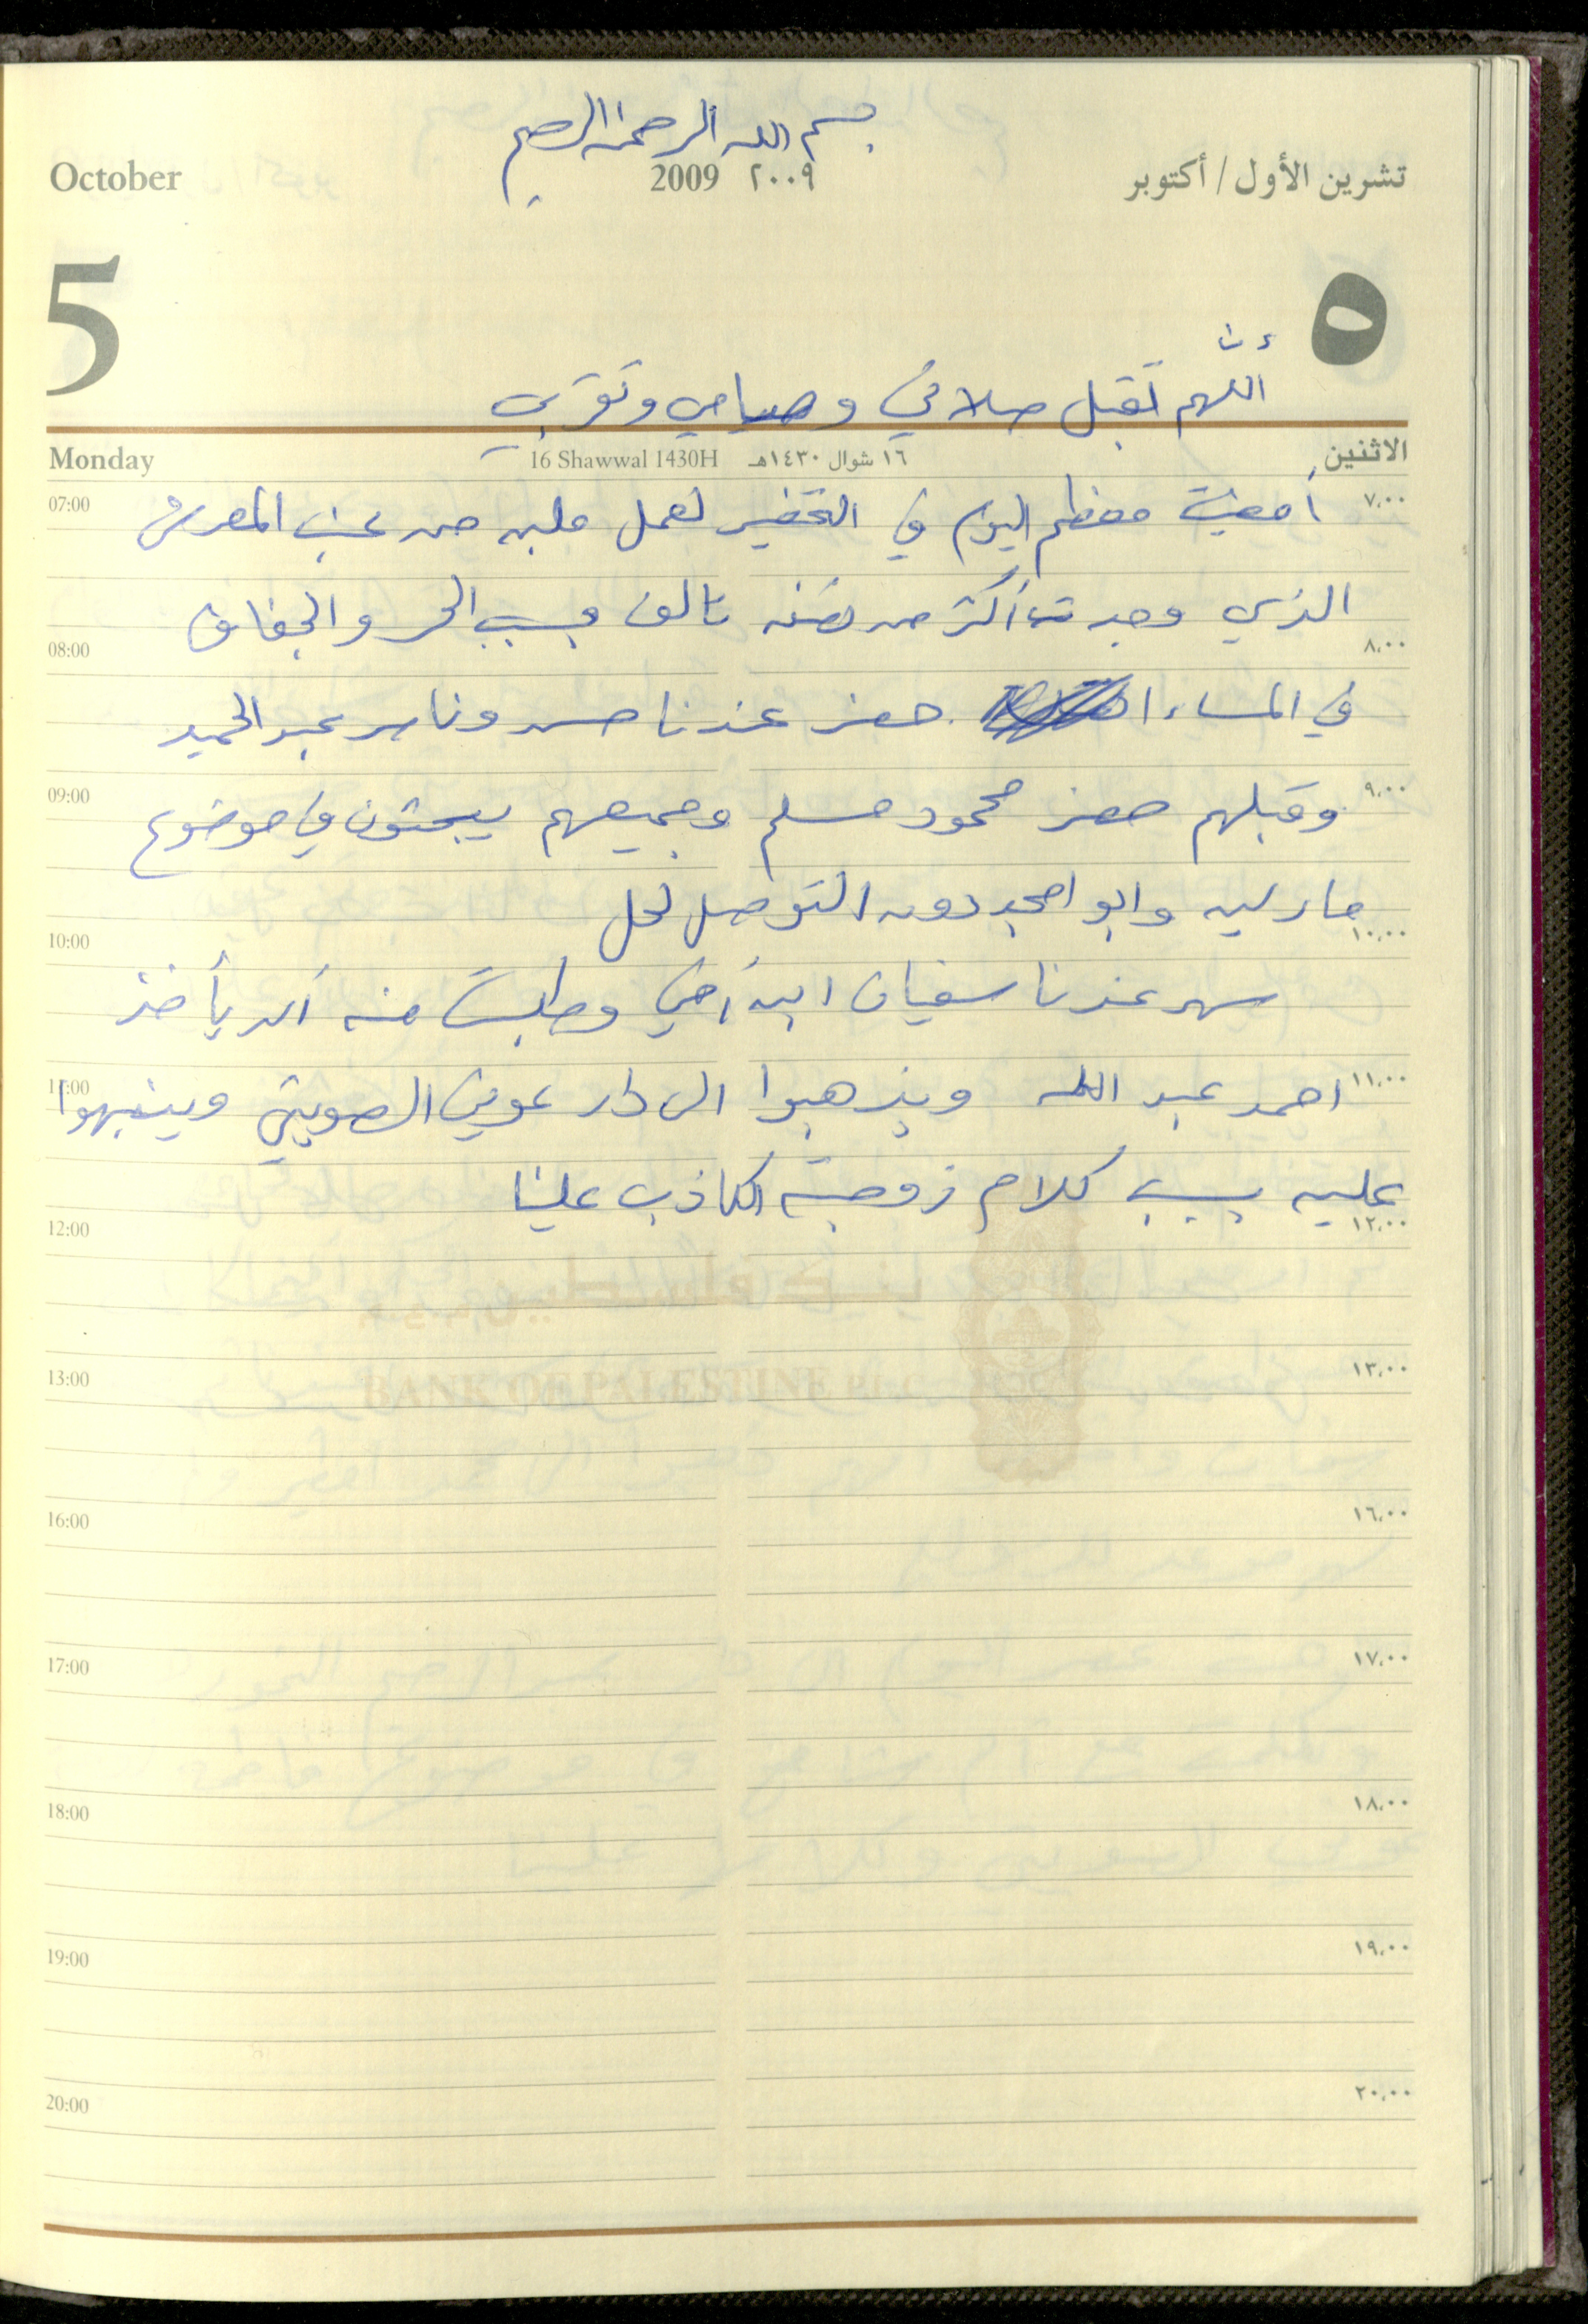 بسم الله الرحمن الرحيم
October 2009 ٢٠٠٩ تشرين الأول / أكتوبر
5 ٥
اللهم تقبل صلاتي وصيامي وتقربي
Monday 16 Shawwal 1430H ١٦ شوال ١٤٣٠هـ الاثنين
07:00 أمضيت معظم اليوم في التحضير لعمل ملبن من عنب المعرش ٧,٠٠
الذي وجدت أكثر من نصفه تالف بسبب الحر والجفاف
08:00 ٨,٠٠
في المساء حضر عندنا حسن وناصر عبد الحميد
09:00 وقبلهم حضر محمود مسلم وجميعهم يبحثون في موضوع ٩,٠٠
مارليه وابو امجد دون التوصل لحل
10:00 ١٠,٠٠
سهر عندنا سفيان ابن أخي وطلبت منه أن يأخذ
11:00 احمد عبد الله ويذهبوا الى دار عوني الصويتي وينبهوا ١١,٠٠
عليه بسبب كلام زوجته الكاذب علينا
12:00 ١٢,٠٠
بنك فلسطين
BANK OF PALESTINE PLC
13:00 ١٣,٠٠
16:00 ١٦,٠٠
17:00 ١٧,٠٠
18:00 ١٨,٠٠
19:00 ١٩,٠٠
20:00 ٢٠,٠٠